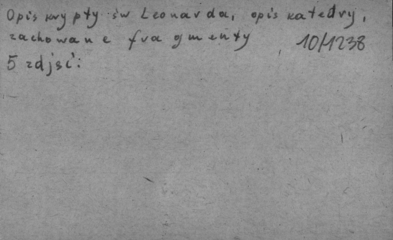 Opis krypty św Leonarda, opis katedry,
zachowane fragmenty 10/1238
5 zdjęć: